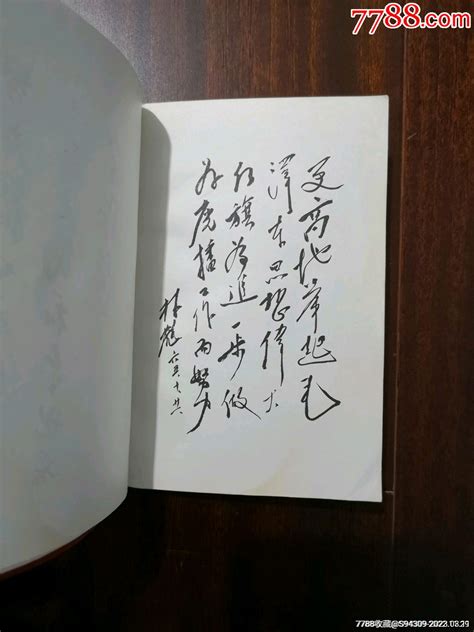 7788.com
更高地举起毛
泽东思想伟大
红旗为进一步做
好广播工作而努力
林彪
7788收藏@S94309-2023